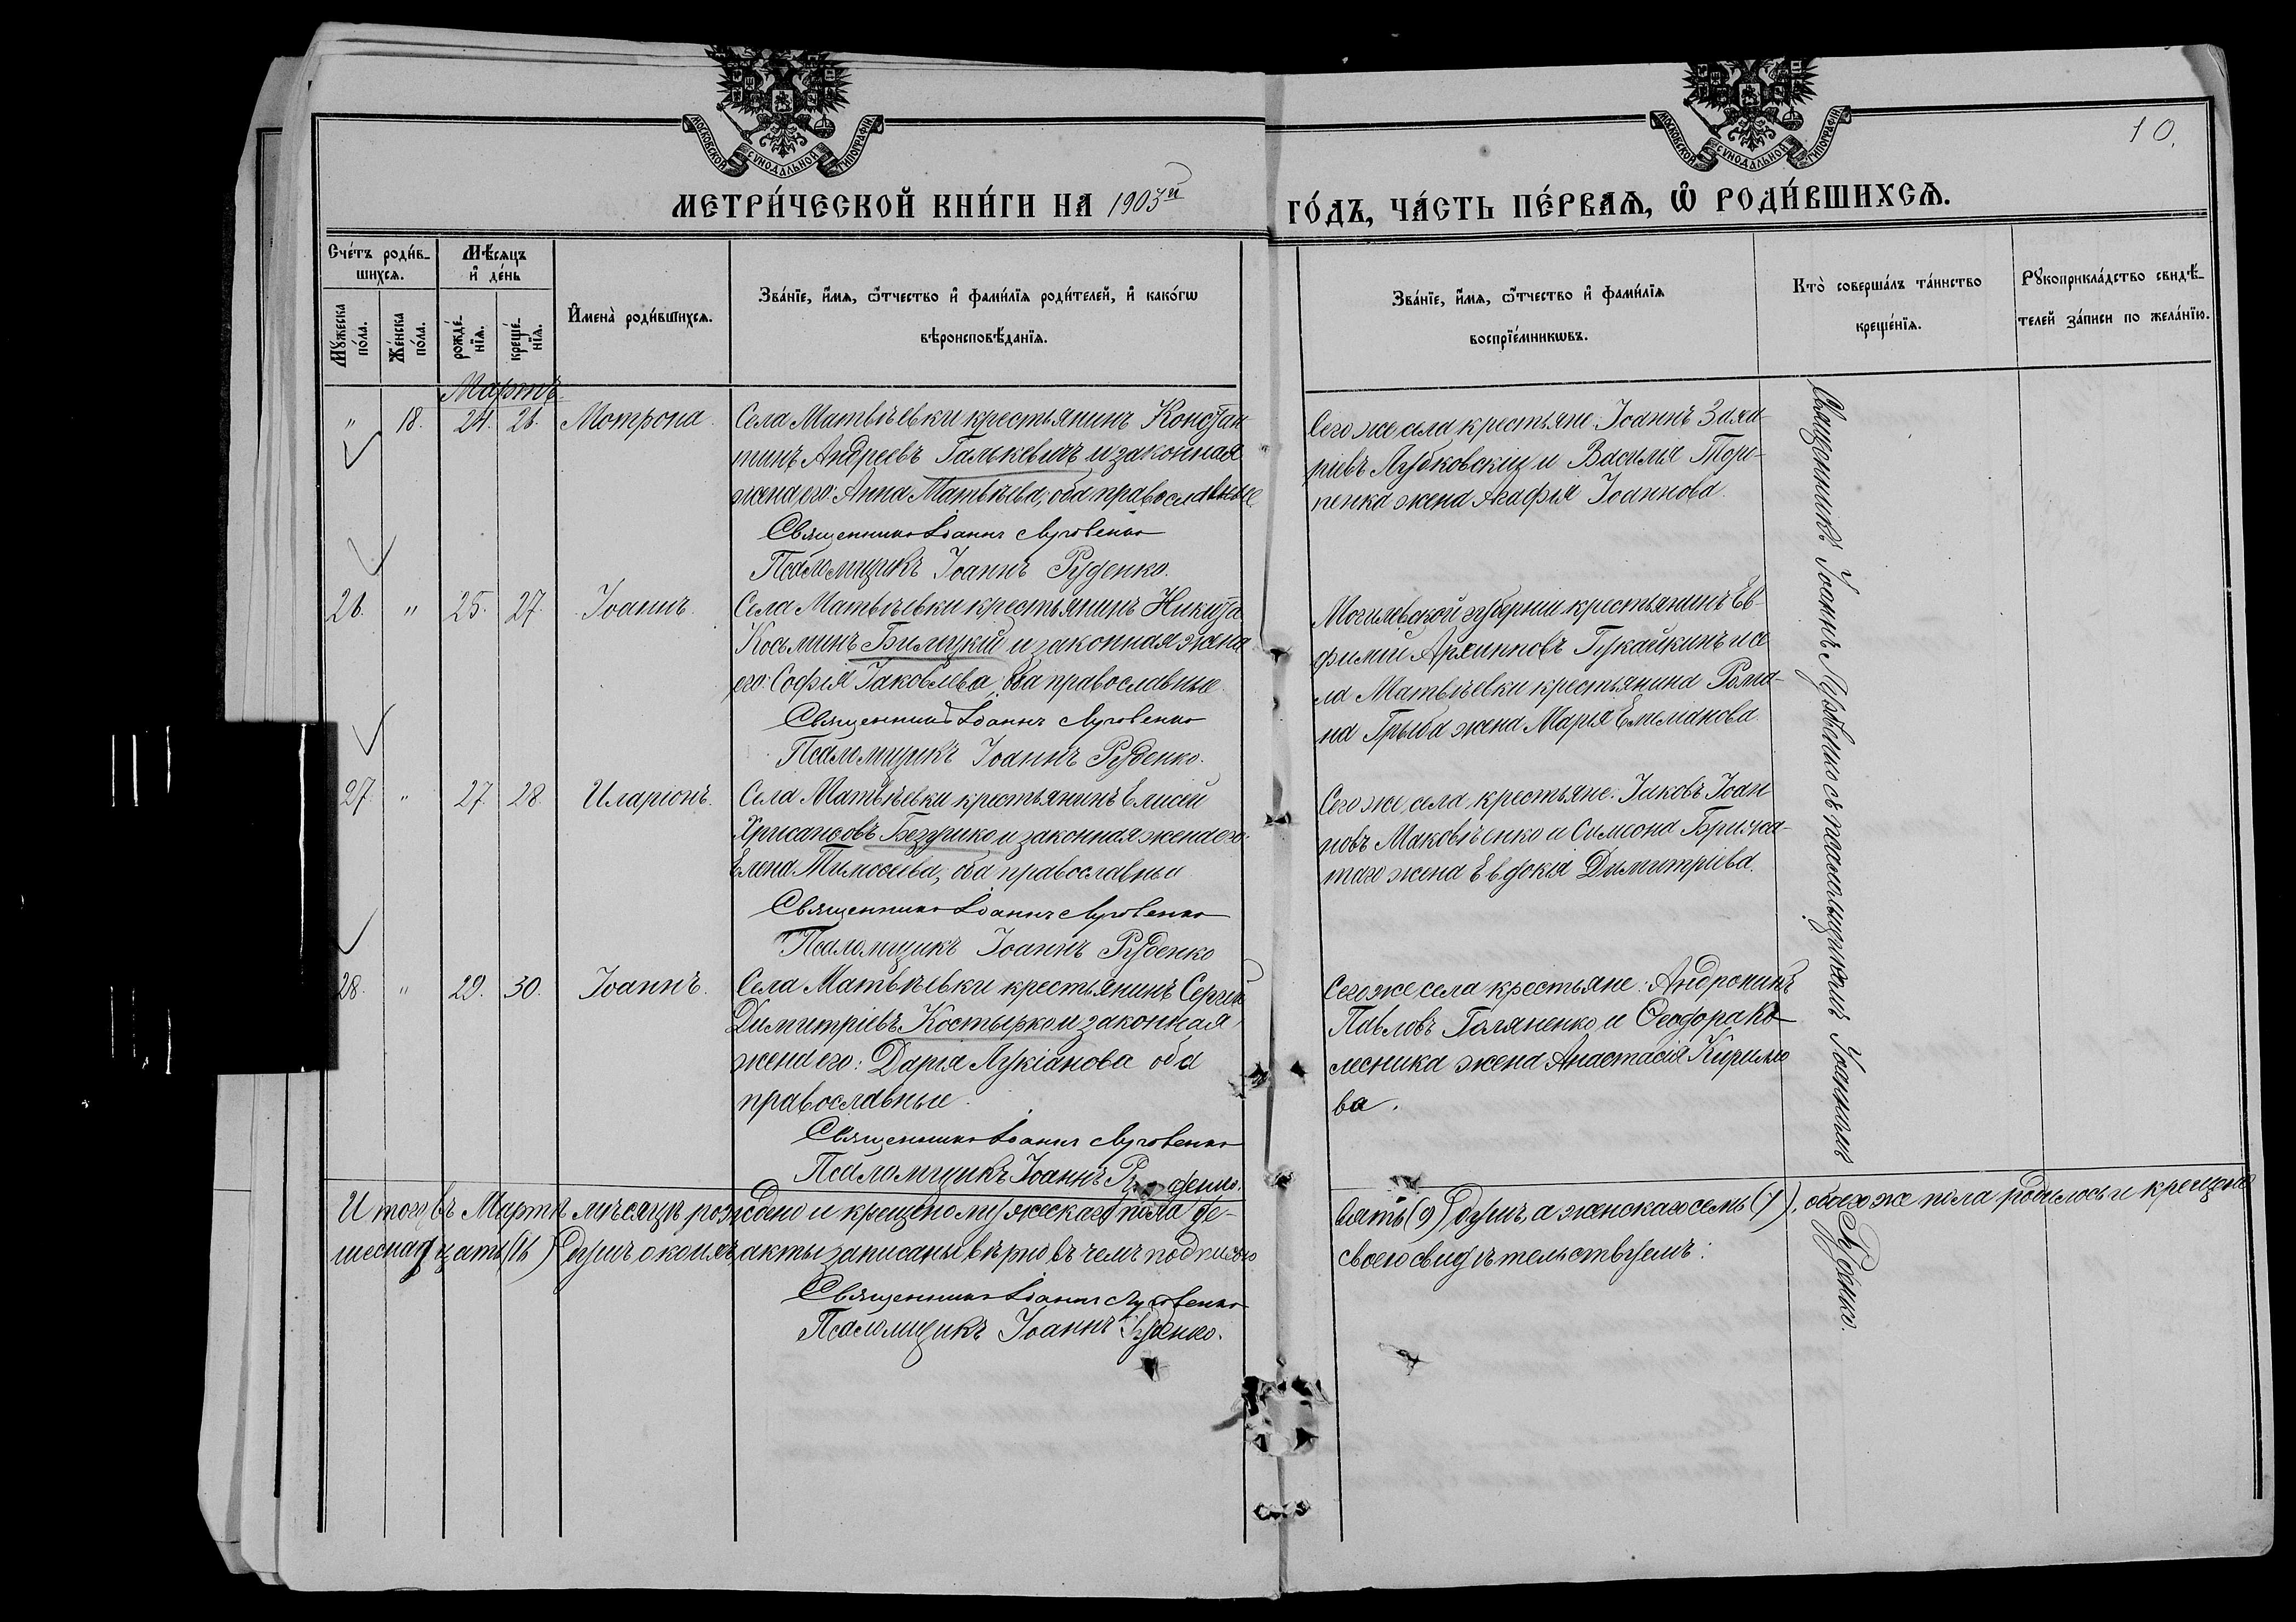 МОСКОВСКОЙ СУНОДАЛЬНОЙ ТИПОГРАФІИ
МОСКОВСКОЙ СУНОДАЛЬНОЙ ТИПОГРАФІИ
10.
МЕТРИ́ЧЕСКОЙ КНИ́ГИ НА 1903й
ГО́ДЪ, ЧА́СТЬ ПЕ́РВАѦ, Ѡ҆ РОДИ́ВШИХСѦ.
Сче́тъ роди́в-
шихсѧ.
Мꙋ́жеска по́ла.
Же́нска по́ла.
Мѣ́сѧцъ
и҆ де́нь
рожде́-
нїѧ.
креще́-
нїѧ.
И҆мена̀ роди́вшихсѧ.
Зва́нїе, и҆́мѧ, ѻ҆́тчество и҆ фами́лїѧ роди́телей, и҆ како́гѡ
вѣроисповѣ́данїѧ.
Зва́нїе, и҆́мѧ, ѻ҆́тчество и҆ фами́лїѧ
воспрїе́мникѡвъ.
Кто̀ соверша́лъ та́инство
креще́нїѧ.
Рꙋкоприкла́дство свидѣ́-
телей за́писи по жела́нїю.
Мартъ.
" 18. 24. 26. Мотрона.
Села Матвѣевки крестьянинъ Констан
тинъ Андреевъ Галькевичъ и законная
жена его: Анна Матвѣева; оба православные
Священникъ Іоаннъ Луговенко
Псаломщикъ Іоаннъ Руденко.
Сего же села крестьяне: Іоаннъ
Лубковскій и Василія
жена Агафія Іоаннова.
26. " 25. 27. Іоаннъ.
Села Матвѣевки крестьянинъ Никита
Косьминъ Билецкій и законная жена
его: Софія Іаковлева, оба православные.
Священникъ Іоаннъ Луговенко
Псаломщикъ Іоаннъ Руденко.
Могилевской губерніи крестьянинъ Ев-
фимій Архипповъ и се
ла Матвѣевки крестьянина Рома-
на Грыба жена Марія Емельянова.
27. " 27. 28. Иларіонъ.
Села Матвѣевки крестьянинъ Елисей
Хрисанѳовъ и законная жена его:
Елена Тимоѳеева, оба православные
Священникъ Іоаннъ Луговенко
Псаломщикъ Іоаннъ Руденко
Сего же села крестьяне: Іаковъ Іоан
новъ Маковѣенко и Симеона Брижа-
таго жена Евдокія Димитріева.
28. " 29. 30. Іоаннъ.
Села Матвѣевки крестьянинъ Сергій
Димитріевъ Костырко и законная
жена его: Дарія Лукіанова оба
православные.
Священникъ Іоаннъ Луговенко
Псаломщикъ Іоаннъ Руденко.
Сего же села крестьяне: Андроникъ
Павловъ Голяненко и Ѳеодора Ко
лесника жена Анастасія Кирило
ва.
Священникъ Іоаннъ Луговенко съ псаломщикомъ Іоанномъ Руденко.
Итого въ Мартѣ мѣсяцѣ рождено и крещено мужескаго пола де-
вять (9) душъ, а женскаго семь (7), обоего же пола родилось и крещено
шеснадцать (16) душъ о коихъ акты записаны вѣрно въ чемъ подписью
своею свидѣтельствуемъ:
Священникъ Іоаннъ Луговенко
Псаломщикъ Іоаннъ Руденко.